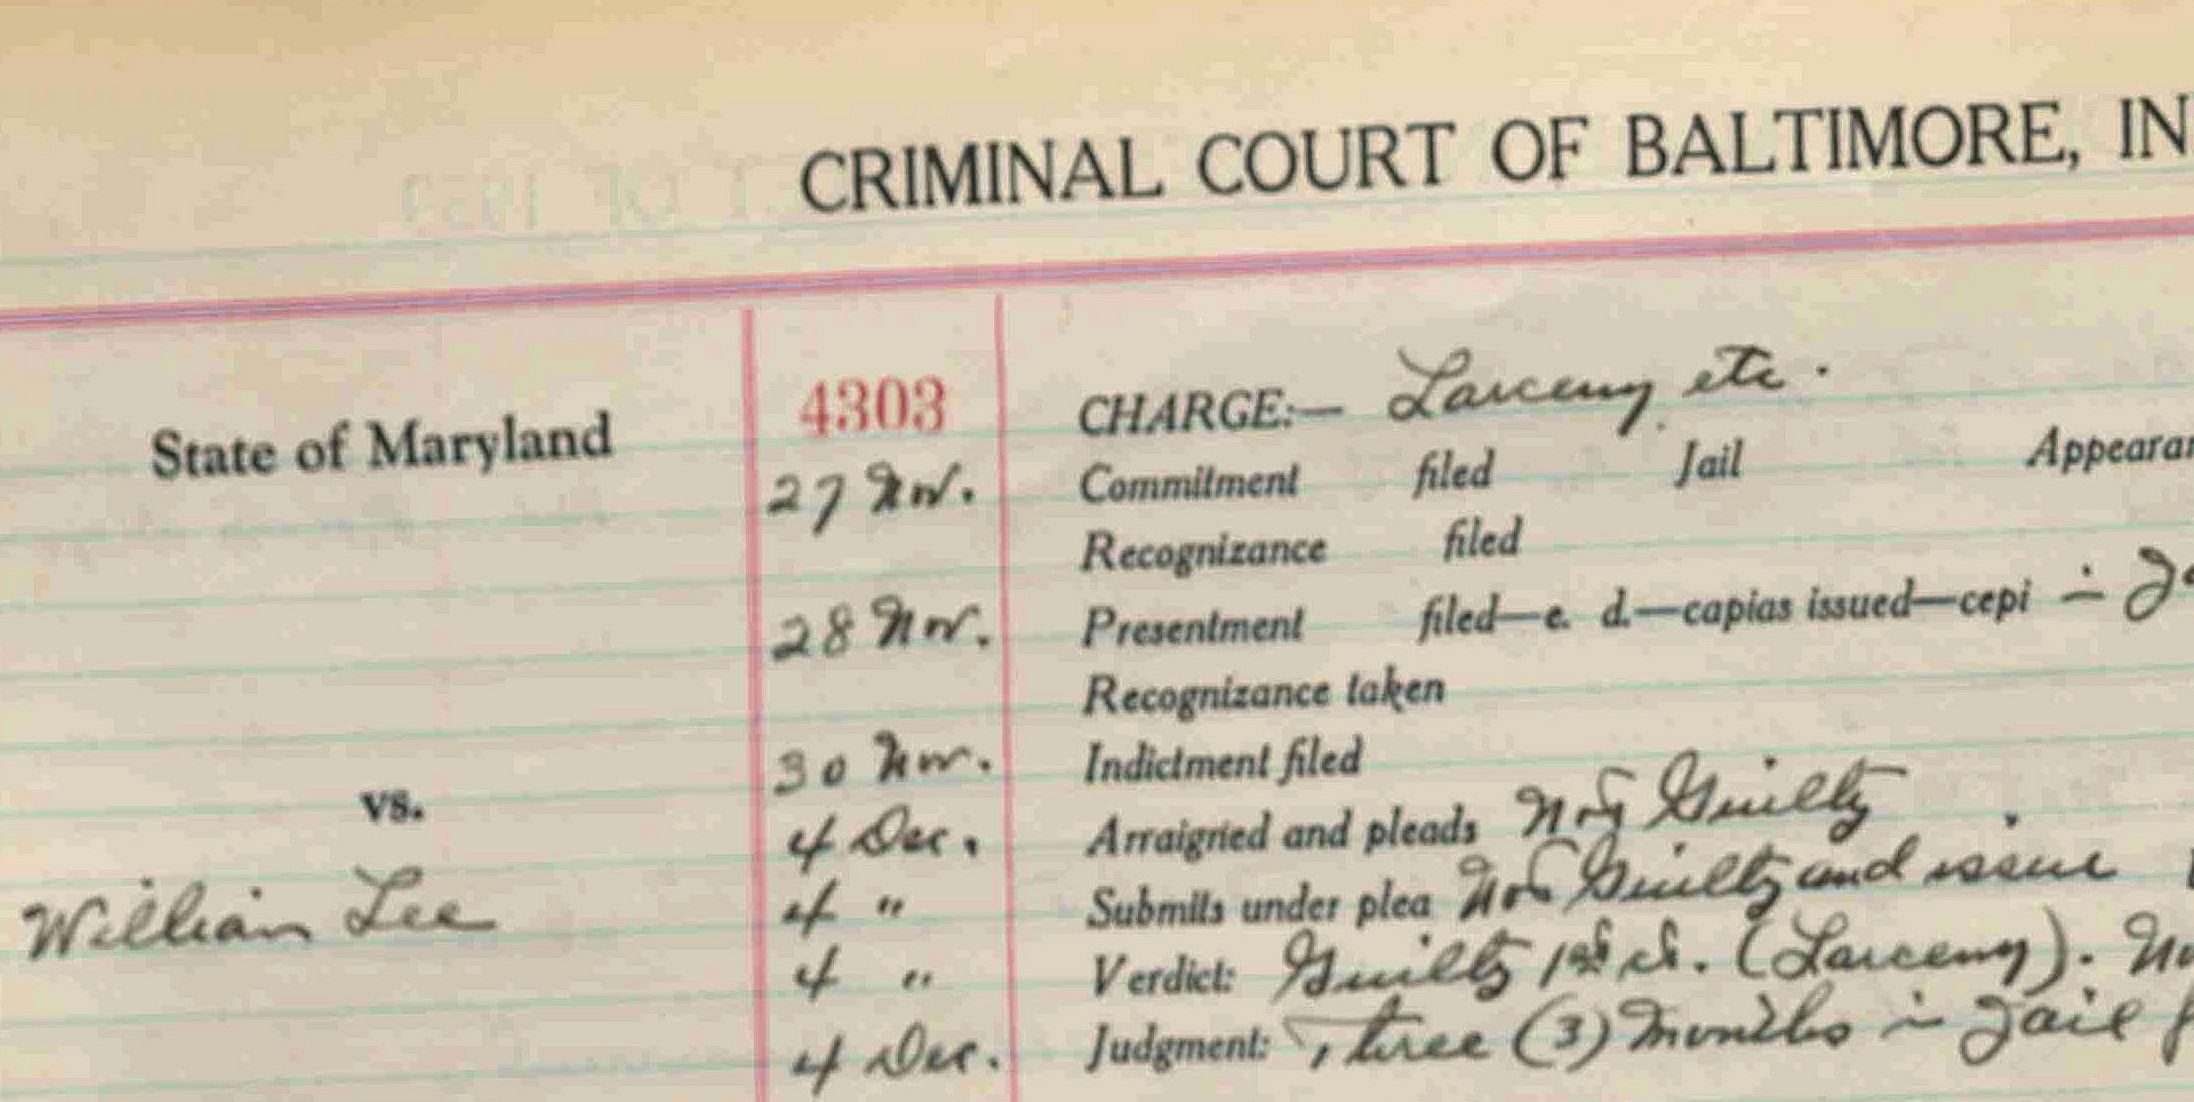 CRIMINAL COURT OF BALTIMORE, IN
State of Maryland
4303
CHARGE:— Larceny etc.
27 Nov. Commitment filed Jail Appearan
Recognizance filed
28 Nov. Presentment filed—e. d.—capias issued—cepi
Recognizance taken
30 Nov. Indictment filed
vs.
4 Dec. Arraigned and pleads Not Guilty
William Lee
4 " Submits under plea Not Guilty and issue
4 " Verdict: Guilty 1st ct. (Larceny).
4 Dec. Judgment: Three (3) Months in Jail